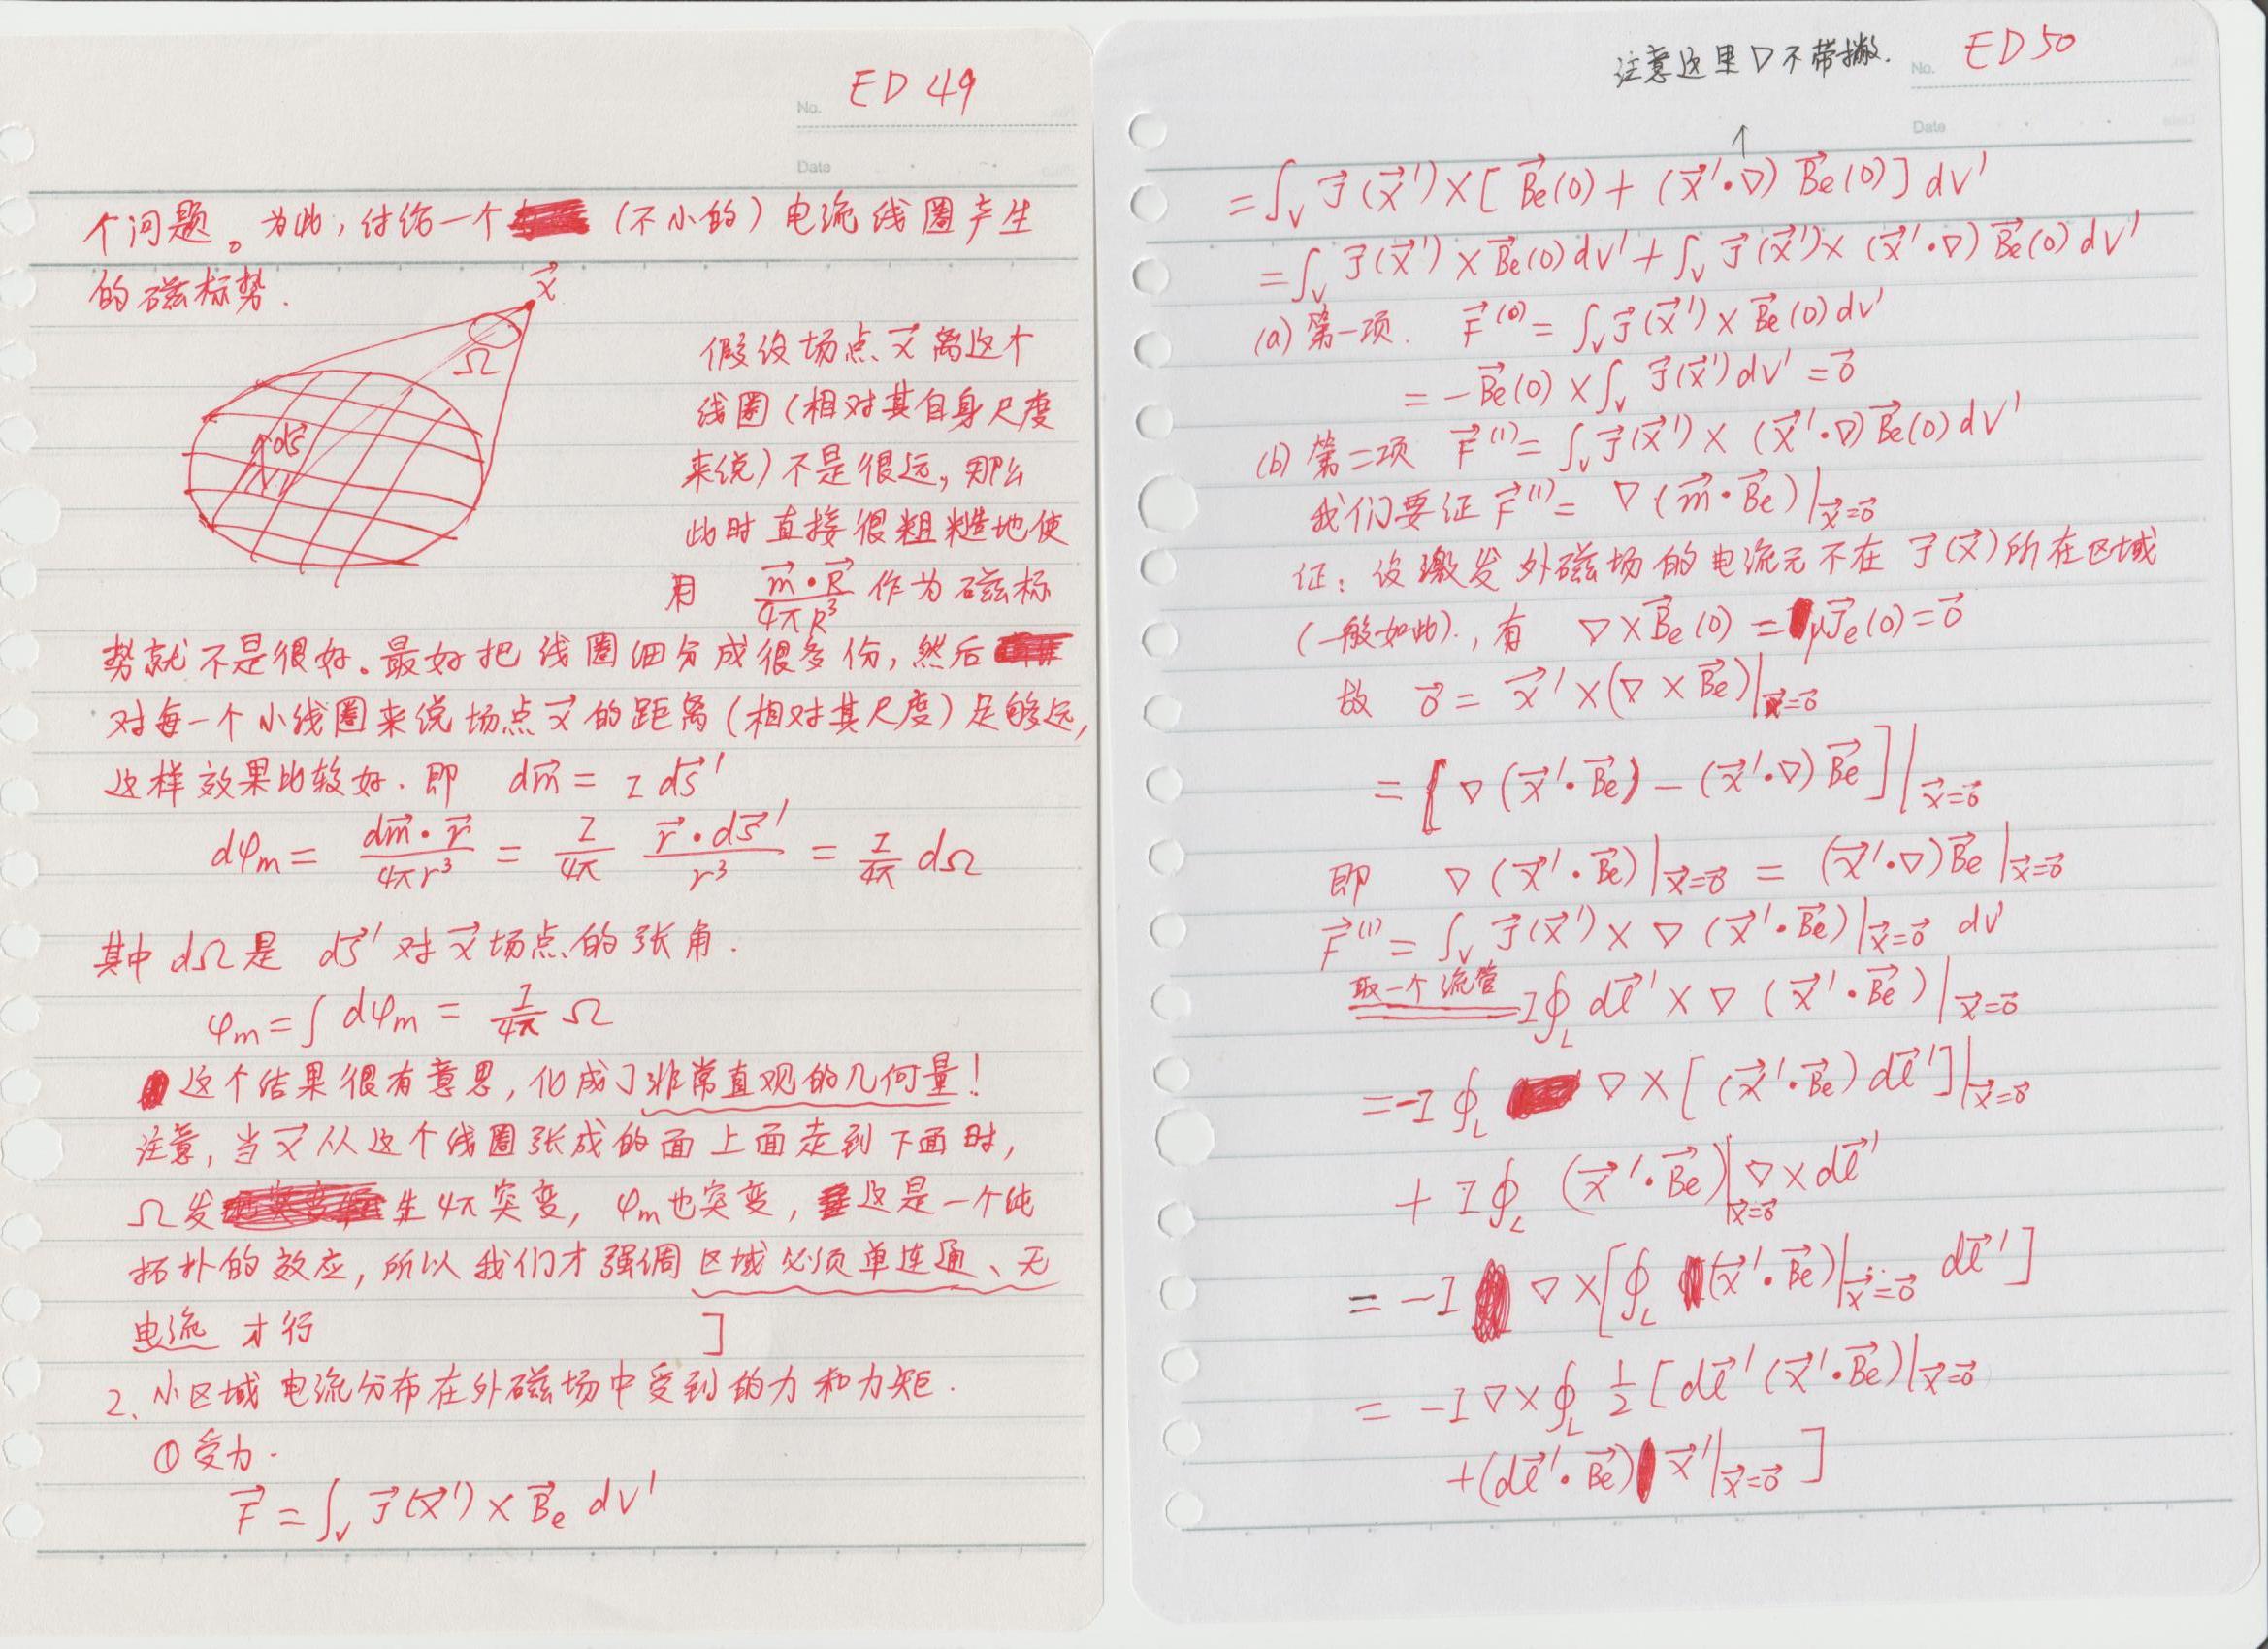 ED 49
No.
Date
个问题。为此,讨论一个（不小的）电流线圈产生
的磁标势.
x⃗
Ω
ds⃗'
假设场点 x⃗ 离这个
线圈（相对其自身尺度
来说）不是很远,那么
此时直接很粗糙地使
用 (m⃗·R⃗)/(4πR³) 作为磁标
势就不是很好。最好把线圈细分成很多份,然后
对每一个小线圈来说场点 x⃗ 的距离（相对其尺度）足够远,
这样效果比较好. 即 dm⃗ = I ds⃗'
dφm = (dm⃗·r⃗)/(4πr³) = I/4π (r⃗·ds⃗')/r³ = I/4π dΩ
其中 dΩ 是 ds⃗' 对 x⃗ 场点的张角.
φm = ∫ dφm = I/4π Ω
这个结果很有意思,化成了非常直观的几何量!
注意,当 x⃗ 从这个线圈张成的面上面走到下面时,
Ω 发生 4π 突变, φm 也突变, 这是一个纯
拓扑的效应,所以我们才强调区域必须单连通、无
电流 才行 ]
2、小区域电流分布在外磁场中受到的力和力矩.
① 受力.
F⃗ = ∫_V J⃗(x⃗') × B⃗e dV'
注意这里 ∇ 不带撇.
ED 50
No.
Date
↑
= ∫_V J⃗(x⃗') × [B⃗e(0) + (x⃗'·∇) B⃗e(0)] dV'
= ∫_V J⃗(x⃗') × B⃗e(0) dV' + ∫_V J⃗(x⃗') × (x⃗'·∇) B⃗e(0) dV'
(a) 第一项. F⃗^(0) = ∫_V J⃗(x⃗') × B⃗e(0) dV'
= −B⃗e(0) × ∫_V J⃗(x⃗') dV' = 0⃗
(b) 第二项 F⃗^(1) = ∫_V J⃗(x⃗') × (x⃗'·∇) B⃗e(0) dV'
我们要证 F⃗^(1) = ∇(m⃗·B⃗e)|x⃗=0⃗
证: 设激发外磁场的电流元不在 J⃗(x⃗) 所在区域
（一般如此）., 有 ∇×B⃗e(0) = μJ⃗e(0) = 0⃗
故 0⃗ = x⃗' × (∇ × B⃗e)|x⃗=0⃗
= [∇(x⃗'·B⃗e) − (x⃗'·∇) B⃗e]|x⃗=0⃗
即 ∇(x⃗'·B⃗e)|x⃗=0⃗ = (x⃗'·∇) B⃗e|x⃗=0⃗
F⃗^(1) = ∫_V J⃗(x⃗') × ∇(x⃗'·B⃗e)|x⃗=0⃗ dV'
取一个流管 = I∮_L dl⃗' × ∇(x⃗'·B⃗e)|x⃗=0⃗
= −I∮_L ∇ × [(x⃗'·B⃗e) dl⃗']|x⃗=0⃗
+ I∮_L (x⃗'·B⃗e)|x⃗=0⃗ ∇ × dl⃗'
= −I ∇ × [∮_L (x⃗'·B⃗e)|x⃗=0⃗ dl⃗']
= −I ∇ × ∮_L 1/2 [dl⃗'(x⃗'·B⃗e)|x⃗=0⃗
+ (dl⃗'·B⃗e) x⃗'|x⃗=0⃗ ]